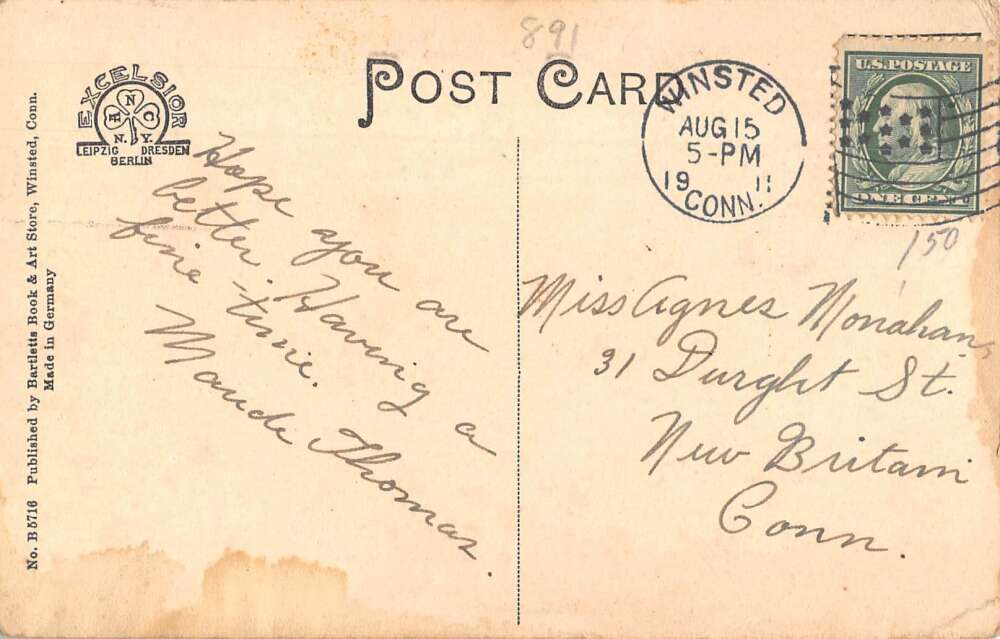 891
POST CARD
EXCELSIOR
H N C
N.Y.
LEIPZIG DRESDEN
BERLIN
WINSTED
AUG 15
5-PM
1911
CONN.
U.S. POSTAGE
ONE CENT
150
Hope you are
better. Having a
fine time.
Maude Thomas.
Miss Agnes Monahan,
31 Dwight St.
New Britain
Conn.
No. B 5716 Published by Bartletts Book & Art Store, Winsted, Conn.
Made in Germany